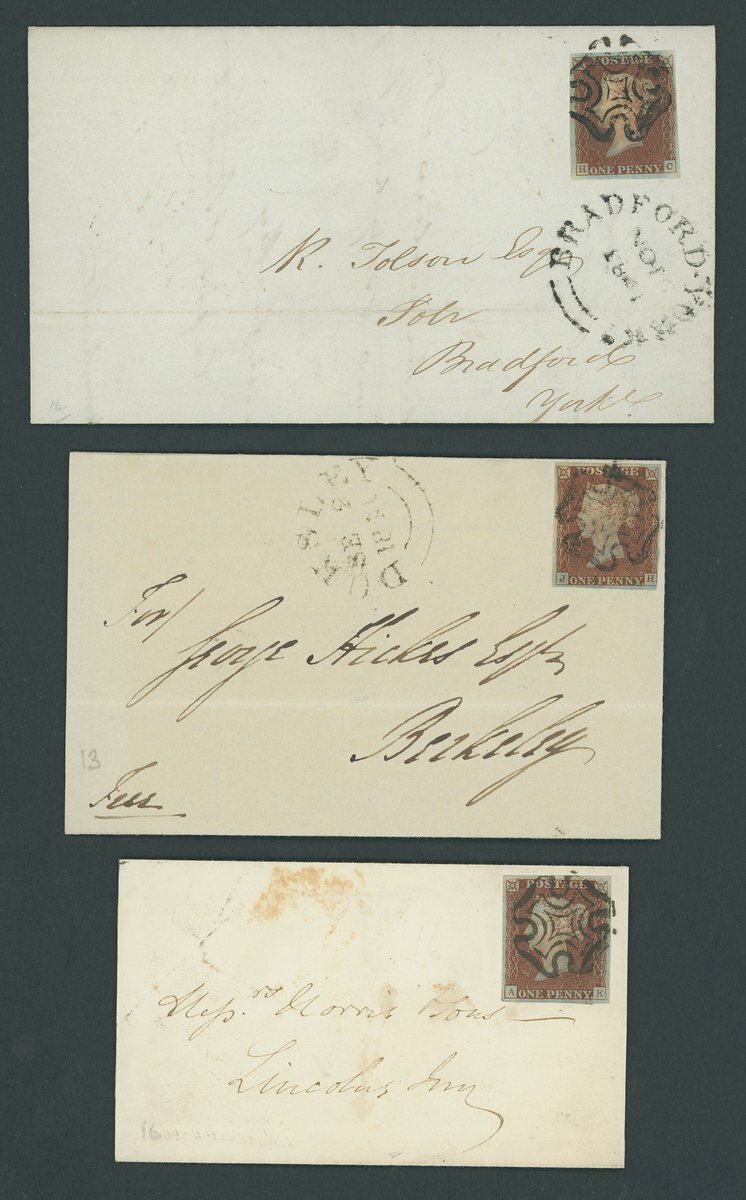 POSTAGE
H ONE PENNY C
BRADFORD-YORKS
R. Tolson Esqr
Bradford
Yorks
16
POSTAGE
J ONE PENNY H
DURSLEY
SE 8
1841
For/
George Hickes Esqr
Berkeley
13
POSTAGE
A ONE PENNY K
Messrs Morris & Sons
Lincolns Inn
16